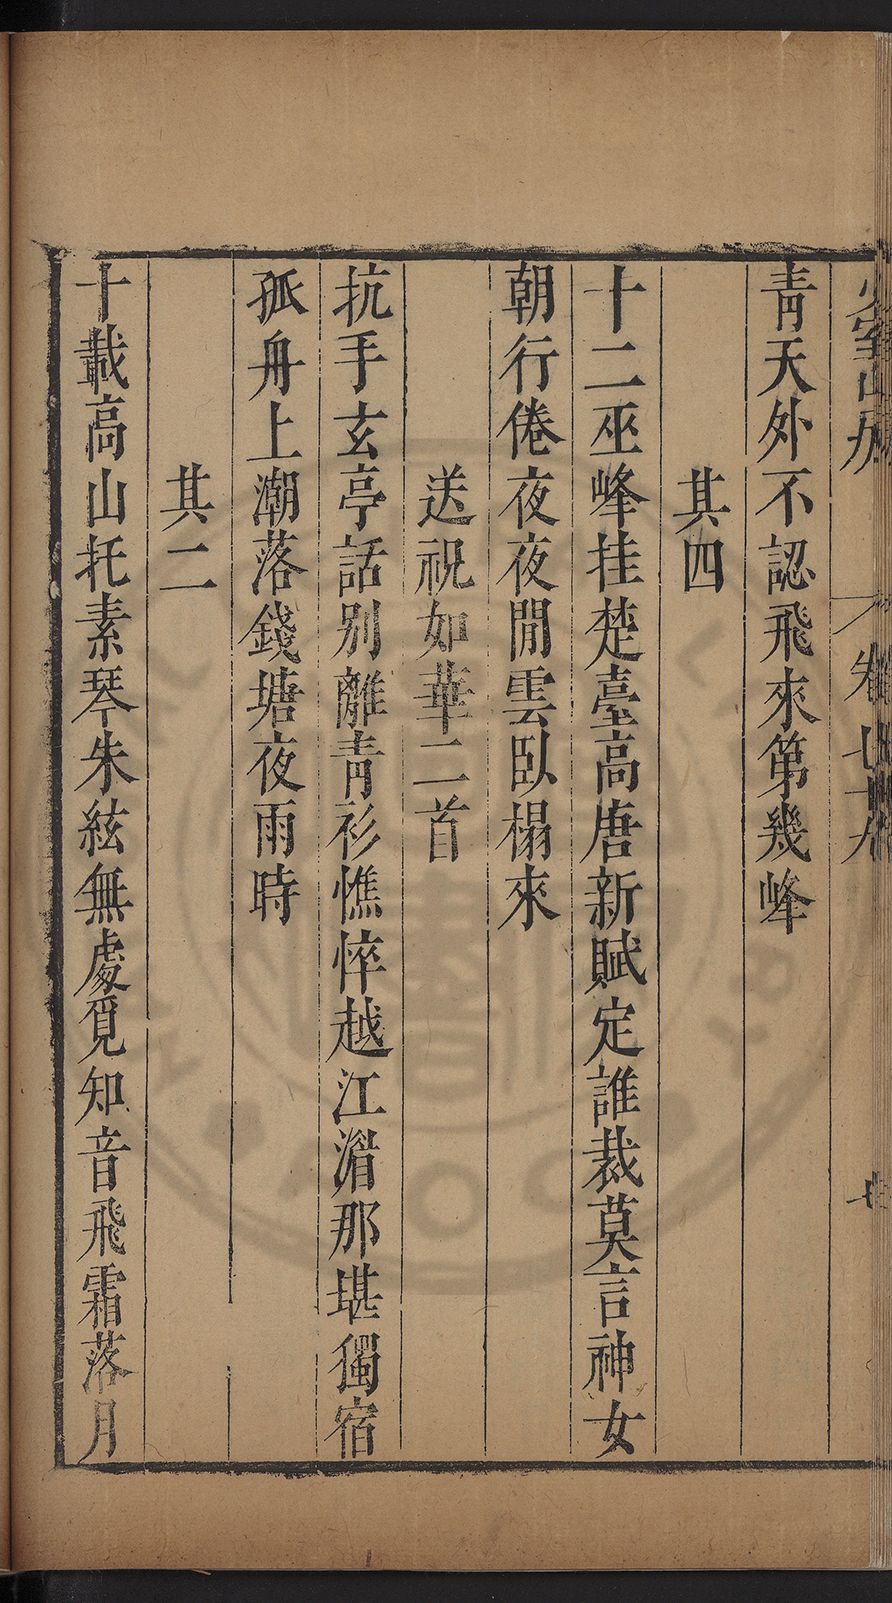 少室山房
卷七十九
七
青天外不認飛來第幾峰
其四
十二巫峰挂楚臺高唐新賦定誰裁莫言神女
朝行倦夜夜閒雲臥榻來
送祝如華二首
抗手玄亭話別離青衫憔悴越江湄那堪獨宿
孤舟上潮落錢塘夜雨時
其二
十載高山托素琴朱絃無處覓知音飛霜落月